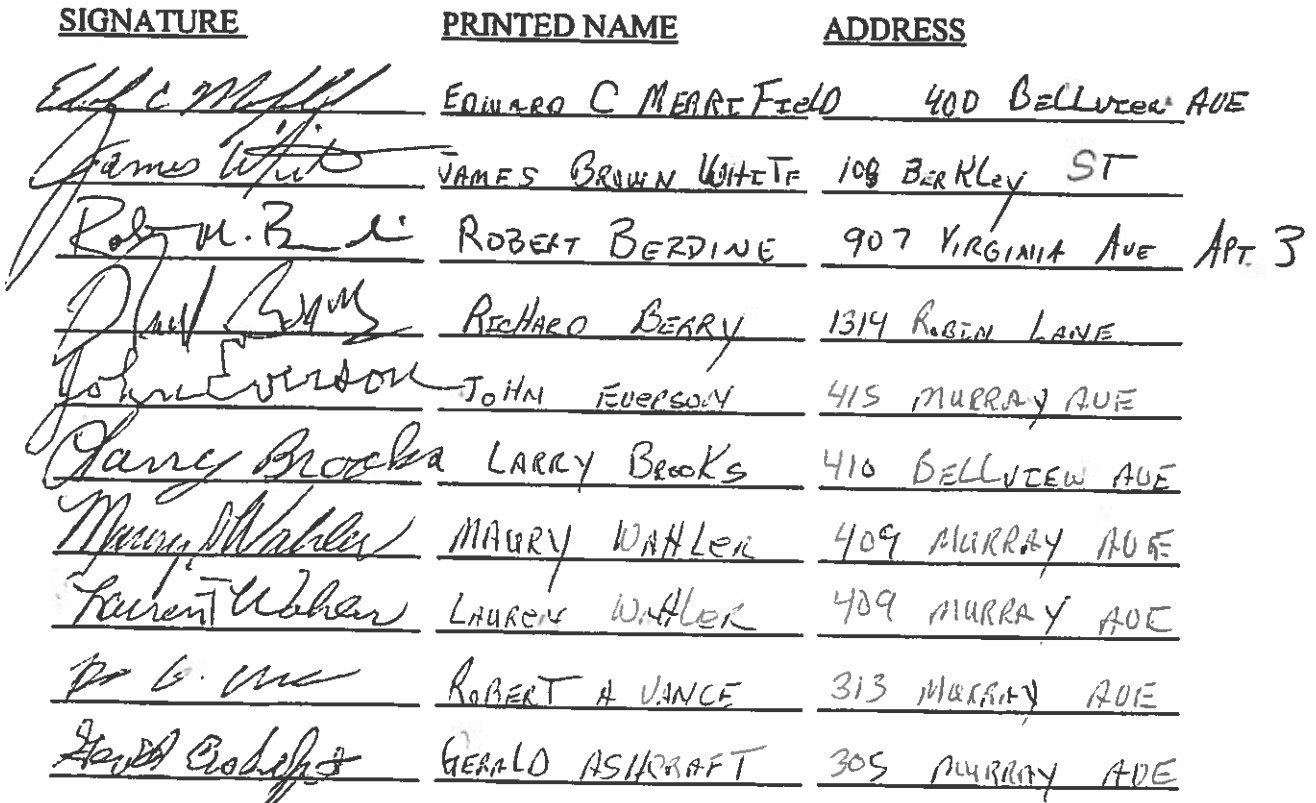 SIGNATURE PRINTED NAME ADDRESS
EDWARD C MERRIFIELD 400 BELLVIEW AVE
James White JAMES BROWN WHITE 108 BERKLEY ST
ROBERT BERDINE 907 VIRGINIA AVE APT. 3
RICHARD BERRY 1314 ROBIN LANE
John Everson JOHN EVERSON 415 MURRAY AVE
Larry Brooks LARRY BROOKS 410 BELLVIEW AVE
Maury D Wahler MAURY WAHLER 409 MURRAY AVE
Lauren T Wahler LAUREN WAHLER 409 MURRAY AVE
ROBERT A VANCE 313 MURRAY AVE
Gerald Ashcraft GERALD ASHCRAFT 305 MURRAY AVE